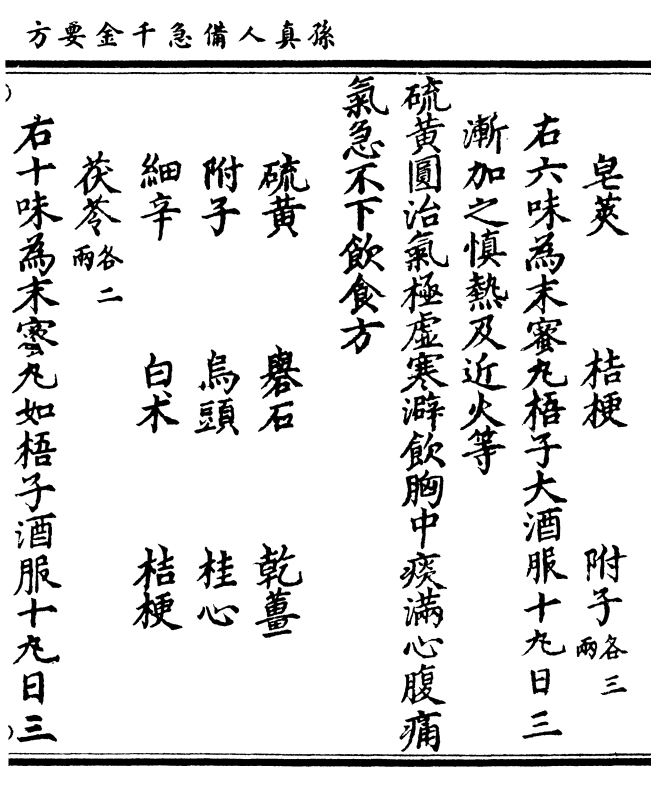 孫真人備急千金要方
皂莢 桔梗 附子各三兩
右六味為末蜜丸梧子大酒服十丸日三
漸加之慎熱及近火等
硫黄圓治氣極虛寒澼飲胸中痰滿心腹痛
氣急不下飲食方
硫黄 礜石 乾薑
附子 烏頭 桂心
細辛 白朮 桔梗
茯苓各二兩
右十味為末蜜丸如梧子酒服十丸日三